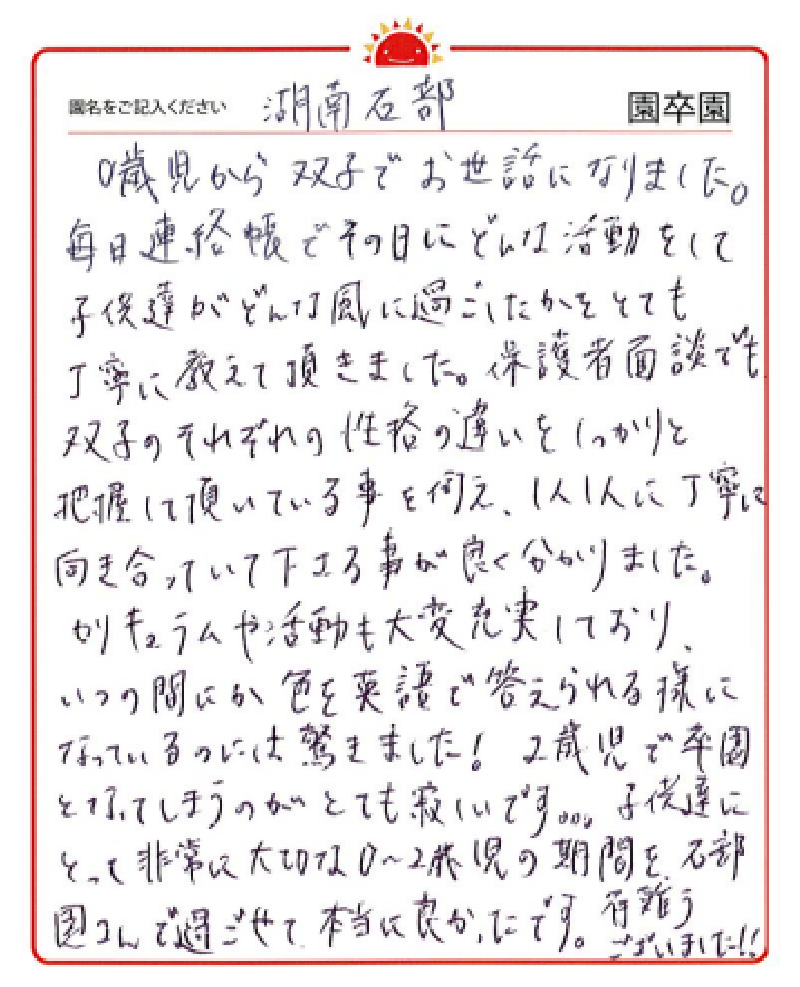 園名をご記入ください 湖南石部 園卒園
0歳児から双子でお世話になりました。
毎日連絡帳でその日にどんな活動をして
子供達がどんな風に過ごしたかをとても
丁寧に教えて頂きました。保護者面談でも
双子のそれぞれの性格の違いをしっかりと
把握して頂いている事を伺え、1人1人に丁寧に
向き合っていて下さる事が良く分かりました。
カリキュラムや活動も大変充実しており、
いつの間にか色を英語で答えられる様に
なっているのには驚きました! 2歳児で卒園
となってしまうのがとても寂しいです。。。子供達に
とって非常に大切な0〜2歳児の期間を石部
園さんで過ごせて本当に良かったです。有難う
ございました!!